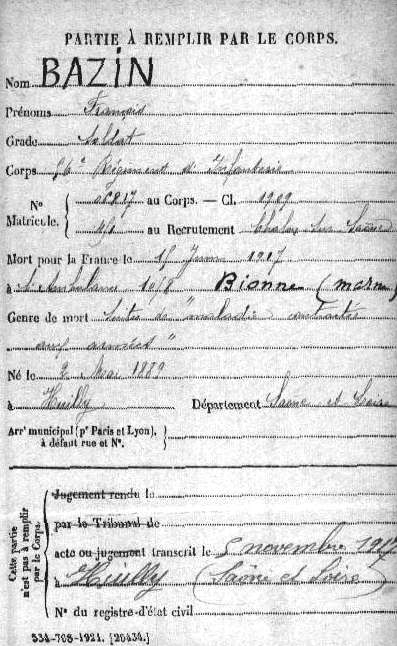 PARTIE À REMPLIR PAR LE CORPS.
Nom BAZIN
Prénoms François
Grade Soldat
Corps Régiment d'Infanterie
N° Matricule. 817 au Corps. — Cl. 1909
au Recrutement Chalon sur Saône
Mort pour la France le 15 Juin 1917
à l'Ambulance 10/8 Bionne (marne)
Genre de mort Suites de "maladie contractée
aux armées"
Né le 2 Mai 1889
à Huilly Département Saône et Loire
Arr' municipal (p' Paris et Lyon),
à défaut rue et N°.
Cette partie n'est pas à remplir par le Corps.
Jugement rendu le
par le Tribunal de
acte ou jugement transcrit le 5 novembre 1917
à Huilly (Saône et Loire)
N° du registre d'état civil
534-708-1921. [26434.]